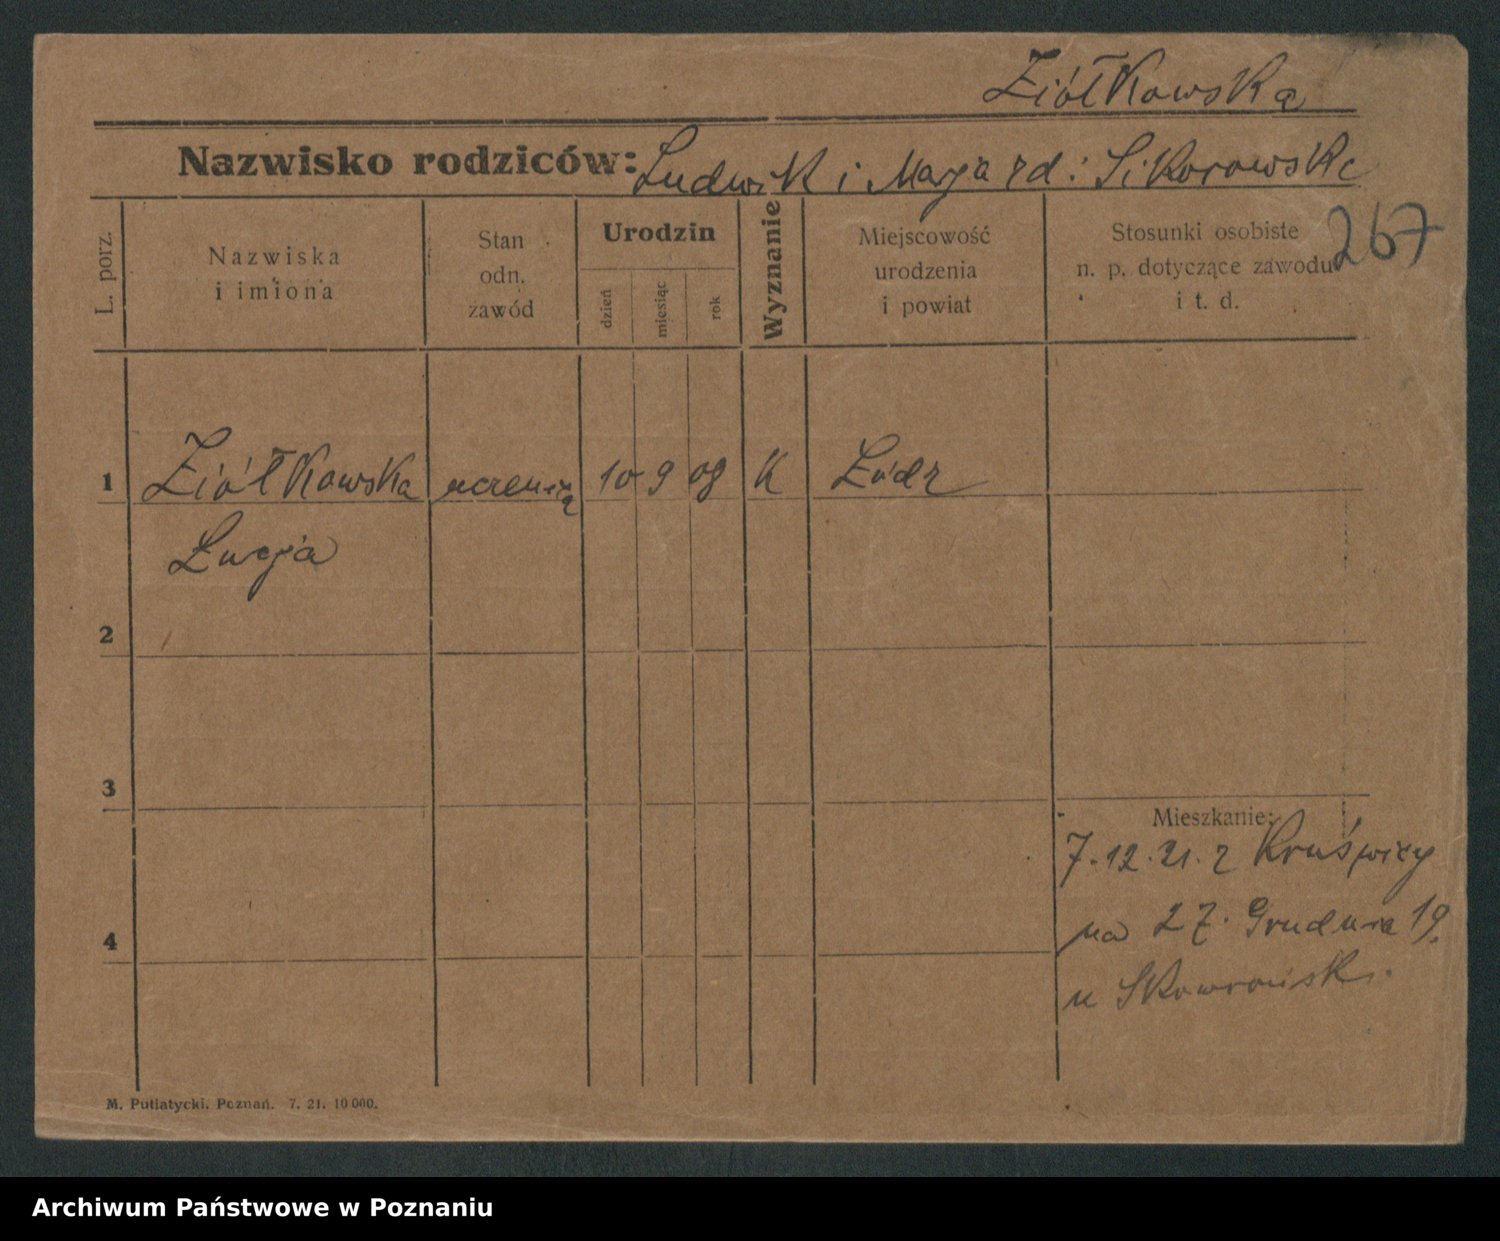 Ziółkowska
Nazwisko rodziców: Ludwik i Marja rd: Sikorowska
267
L. porz.
Nazwiska
i imiona
Stan
odn.
zawód
Urodzin
dzień
miesiąc
rok
Wyznanie
Miejscowość
urodzenia
i powiat
Stosunki osobiste
n. p. dotyczące zawodu
i t. d.
1 Ziółkowska uczenica 10 9 08 K Łódz
Łucja
2
3
Mieszkanie:
7.12.21. z Kruświcy
na 27. Grudnia 19.
4
u Skowrońsk.
M. Putiatycki. Poznań. 7. 21. 10 000.
Archiwum Państwowe w Poznaniu